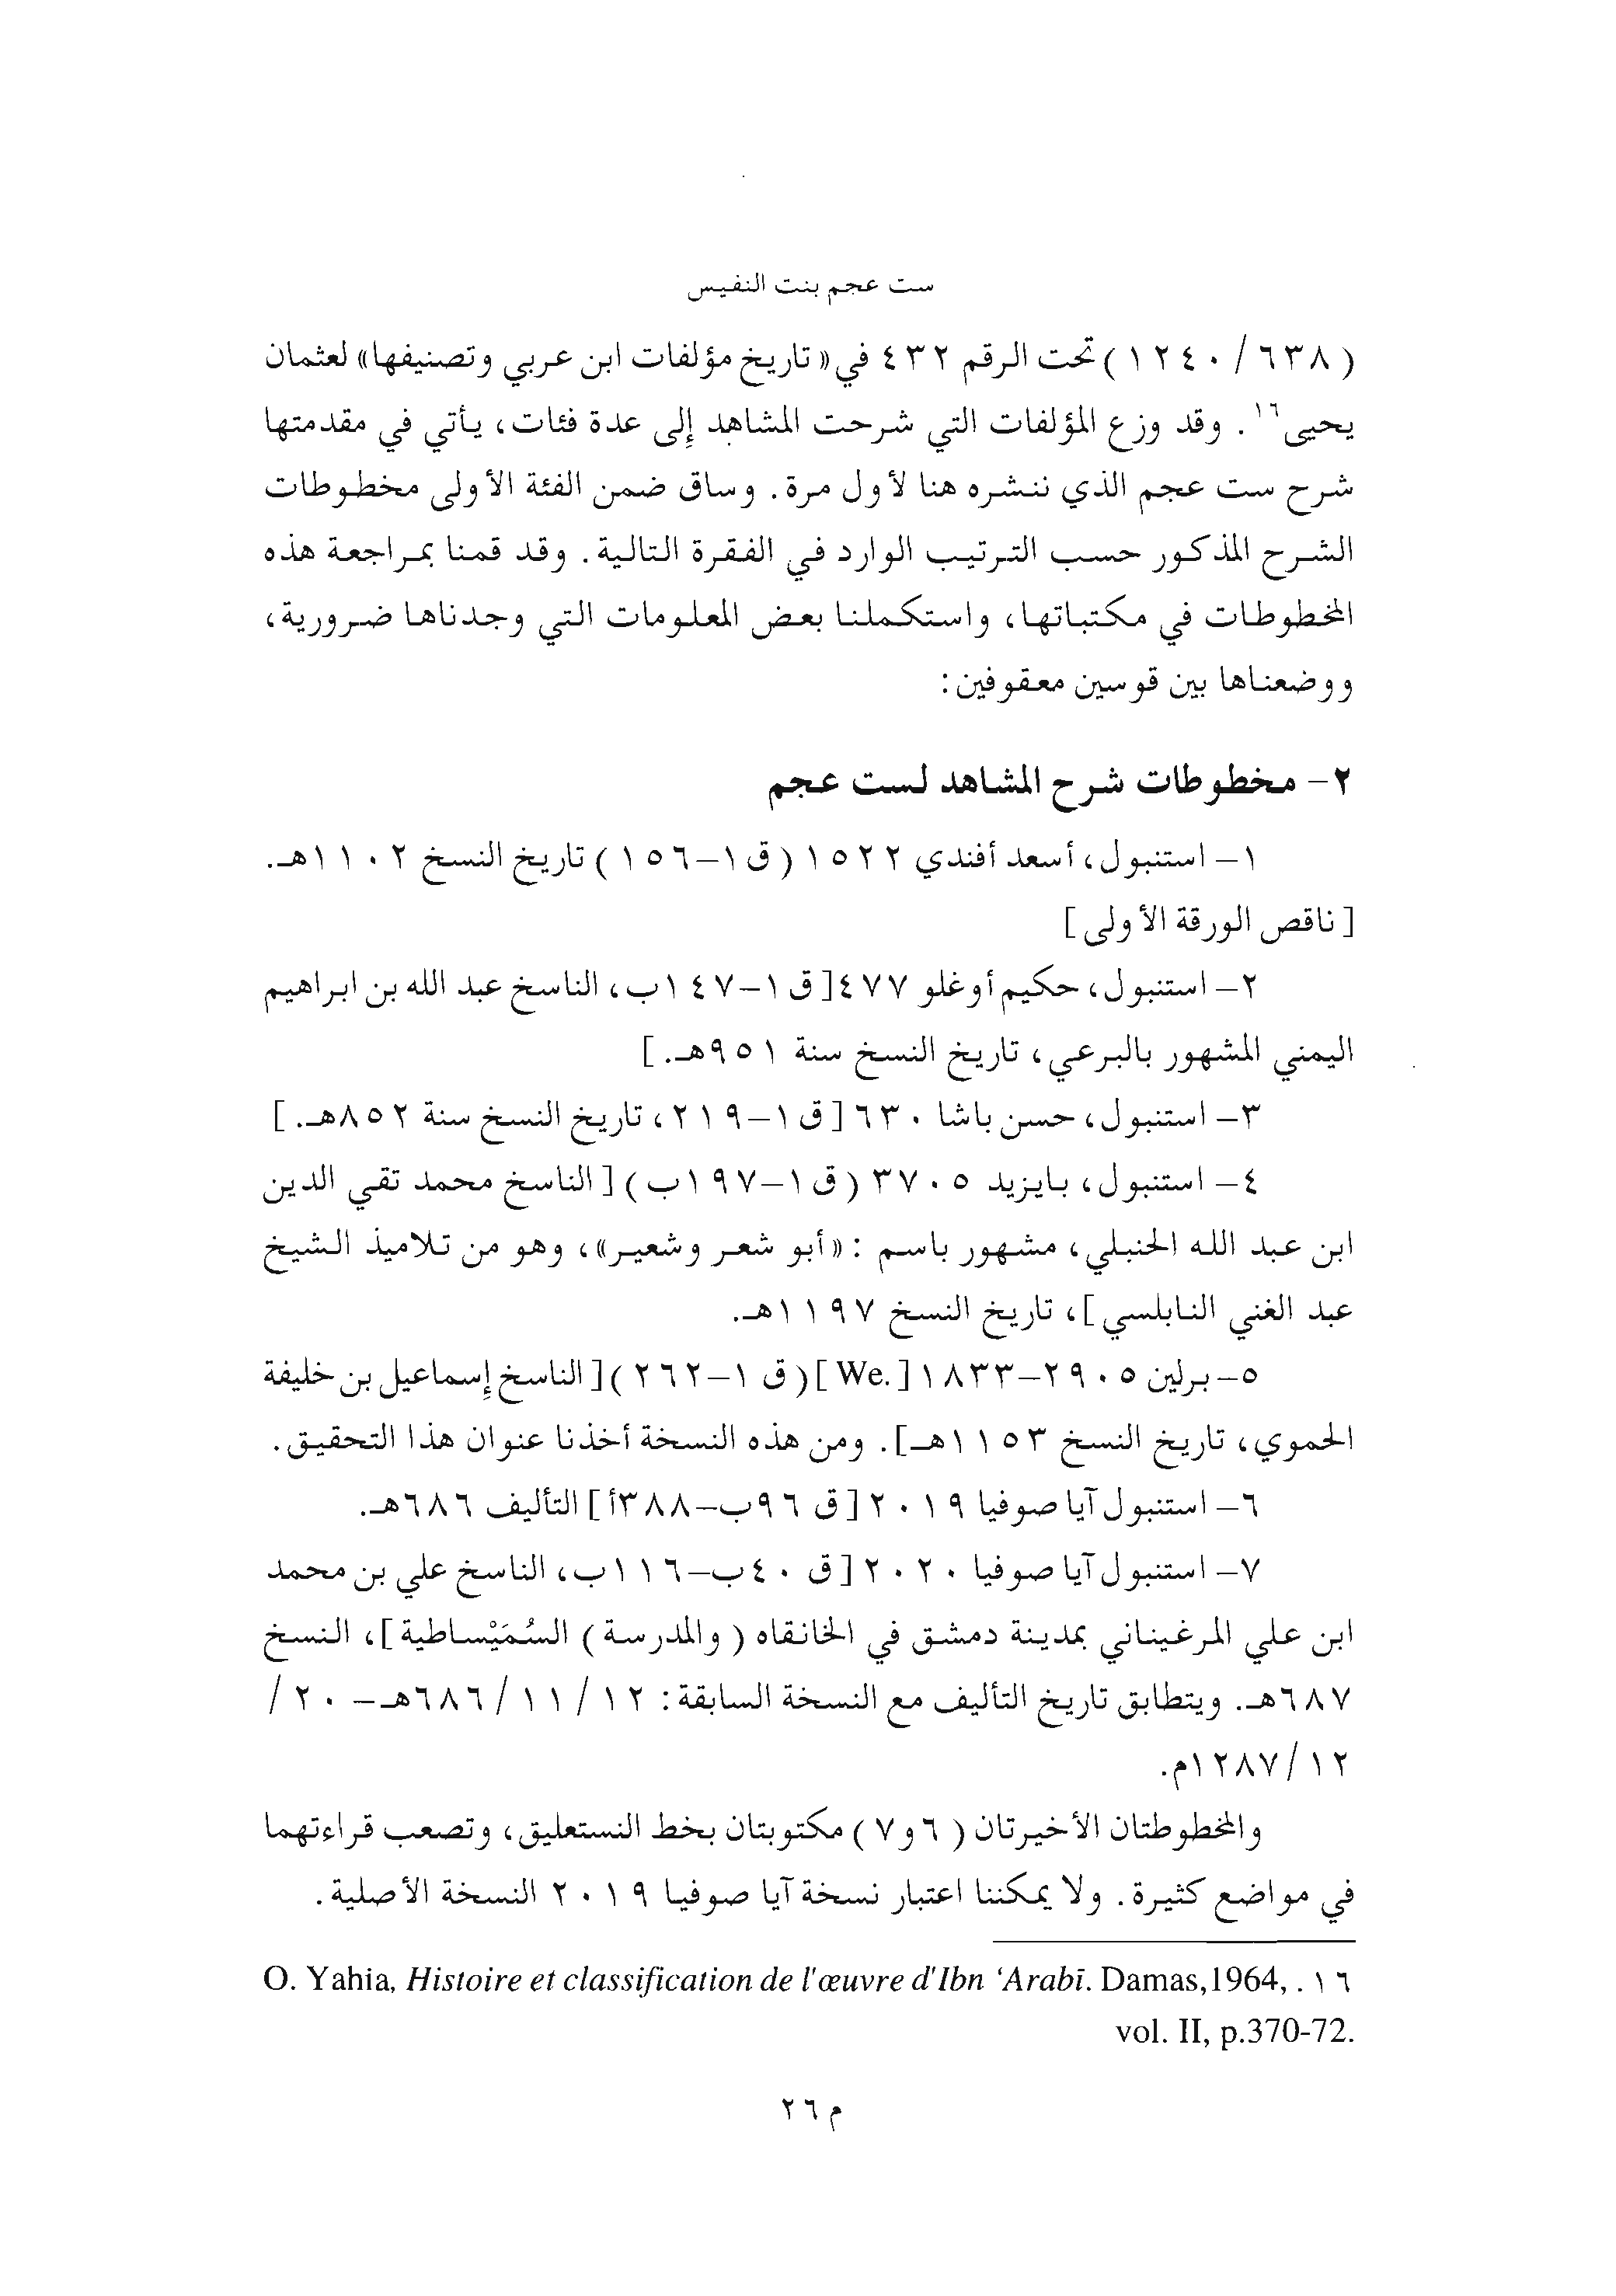 ست عجم بنت النفيس
(٦٣٨/١٢٤٠) تحت الرقم ٤٣٢ في «تاريخ مؤلفات ابن عربي وتصنيفها» لعثمان
يحيى١٦. وقد وزع المؤلفات التي شرحت المشاهد إلى عدة فئات، يأتي في مقدمتها
شرح ست عجم الذي ننشره هنا لأول مرة. وساق ضمن الفئة الأولى مخطوطات
الشرح المذكور حسب الترتيب الوارد في الفقرة التالية. وقد قمنا بمراجعة هذه
المخطوطات في مكتباتها، واستكملنا بعض المعلومات التي وجدناها ضرورية،
ووضعناها بين قوسين معقوفين:
٢- مخطوطات شرح المشاهد لست عجم
١- استنبول، أسعد أفندي ١٥٢٢ (ق١-١٥٦) تاريخ النسخ ١١٠٢هـ.
[ناقص الورقة الأولى]
٢- استنبول، حكيم أوغلو ٤٧٧[ق١-١٤٧ب، الناسخ عبد الله بن ابراهيم
اليمني المشهور بالبرعي، تاريخ النسخ سنة ٩٥١هـ.]
٣- استنبول، حسن باشا ٦٣٠ [ق١-٢١٩، تاريخ النسخ سنة ٨٥٢هـ.]
٤- استنبول، بايزيد ٣٧٠٥ (ق١-١٩٧ب) [الناسخ محمد تقي الدين
ابن عبد الله الحنبلي، مشهور باسم : «أبو شعر وشعير»، وهو من تلاميذ الشيخ
عبد الغني النابلسي]، تاريخ النسخ ١١٩٧هـ.
٥- برلين ٢٩٠٥-١٨٣٣ [We.] (ق ١-٢٦٢) [الناسخ إسماعيل بن خليفة
الحموي، تاريخ النسخ ١١٥٣هـ]. ومن هذه النسخة أخذنا عنوان هذا التحقيق.
٦- استنبول آيا صوفيا ٢٠١٩ [ق ٩٦ب-٣٨٨أ] التأليف ٦٨٦هـ.
٧- استنبول آيا صوفيا ٢٠٢٠ [ق ٤٠ب-١١٦ب، الناسخ علي بن محمد
ابن علي المرغيناني بمدينة دمشق في الخانقاه (والمدرسة) السُمَيْساطية]، النسخ
٦٨٧هـ. ويتطابق تاريخ التأليف مع النسخة السابقة: ١٢/١١/٦٨٦هـ- ٢٠/
١٢/١٢٨٧م.
والمخطوطتان الأخيرتان (٦و٧) مكتوبتان بخط النستعليق، وتصعب قراءتهما
في مواضع كثيرة. ولا يمكننا اعتبار نسخة آيا صوفيا ٢٠١٩ النسخة الأصلية.
١٦. O. Yahia, Histoire et classification de l'œuvre d'Ibn ‘Arabī. Damas,1964,
vol. II, p.370-72.
م٢٦